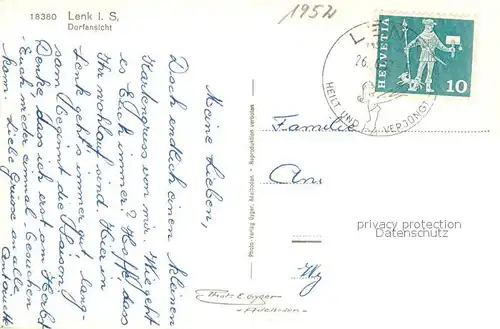 18380 Lenk i. S,
Dorfansicht
1952
Meine Lieben,
Doch endlich einen kleinen
Kartengruss von mir. Wie geht
es Euch immer? Hoffe, dass
Ihr wohlauf sind. Hier in
Lenk geht's immer gut. Lang-
sam beginnt die Saison.
Denke, dass ich erst am Herbst
Euch wieder einmal besuchen
kom. Liebe Grüsse an alle
Antoinette
Photo-Verlag Gyger, Adelboden - Reproduktion verboten
HELVETIA
10
26.
HEILT UND VERJÜNGT
Familie
An
Wy
privacy protection
watermark
Phot. E. Gyger
- Adelboden -